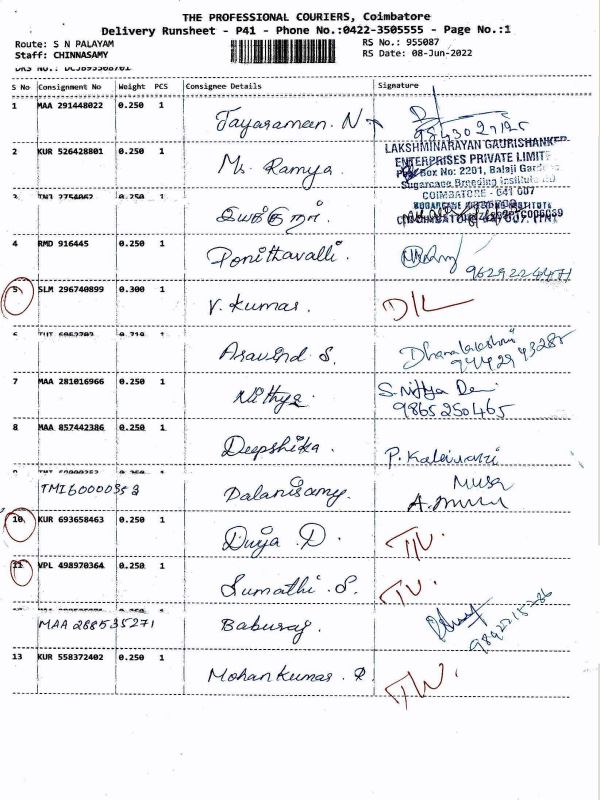 THE PROFESSIONAL COURIERS, Coimbatore
Delivery Runsheet - P41 - Phone No.:0422-3505555 - Page No.:1
Route: S N PALAYAM
Staff: CHINNASAMY
RS No.: 955087
RS Date: 08-Jun-2022
S No Consignment No Weight PCS Consignee Details Signature
1 MAA 291448022 0.250 1 Jayaraman. N
2 KUR 526428801 0.250 1 Ms. Ramya
LAKSHMINARAYAN GAURISHANKER
ENTERPRISES PRIVATE LIMITED
Box No: 2201, Balaji Garden
Sugarcane Breeding Institute
COIMBATORE - 641 007
இயக்குநர்.
4 RMD 916445 0.250 1 Ponithavalli.
9629224471
5 SLM 296740899 0.300 1 V. Kumar. D/L
Aravind S. Dhanalakshmi
7 MAA 281016966 0.250 1 Nithya S. Nithya De
9865250465
8 MAA 857442386 0.250 1 Deepshika. P. Kalaivani
TMI60000353 Palanisamy.
10 KUR 693658463 0.250 1 Divya D.
VPL 498970364 0.250 1 Sumathi. S.
MAA 288535271 Baburaj.
13 KUR 558372402 0.250 1 Mohankumar. R